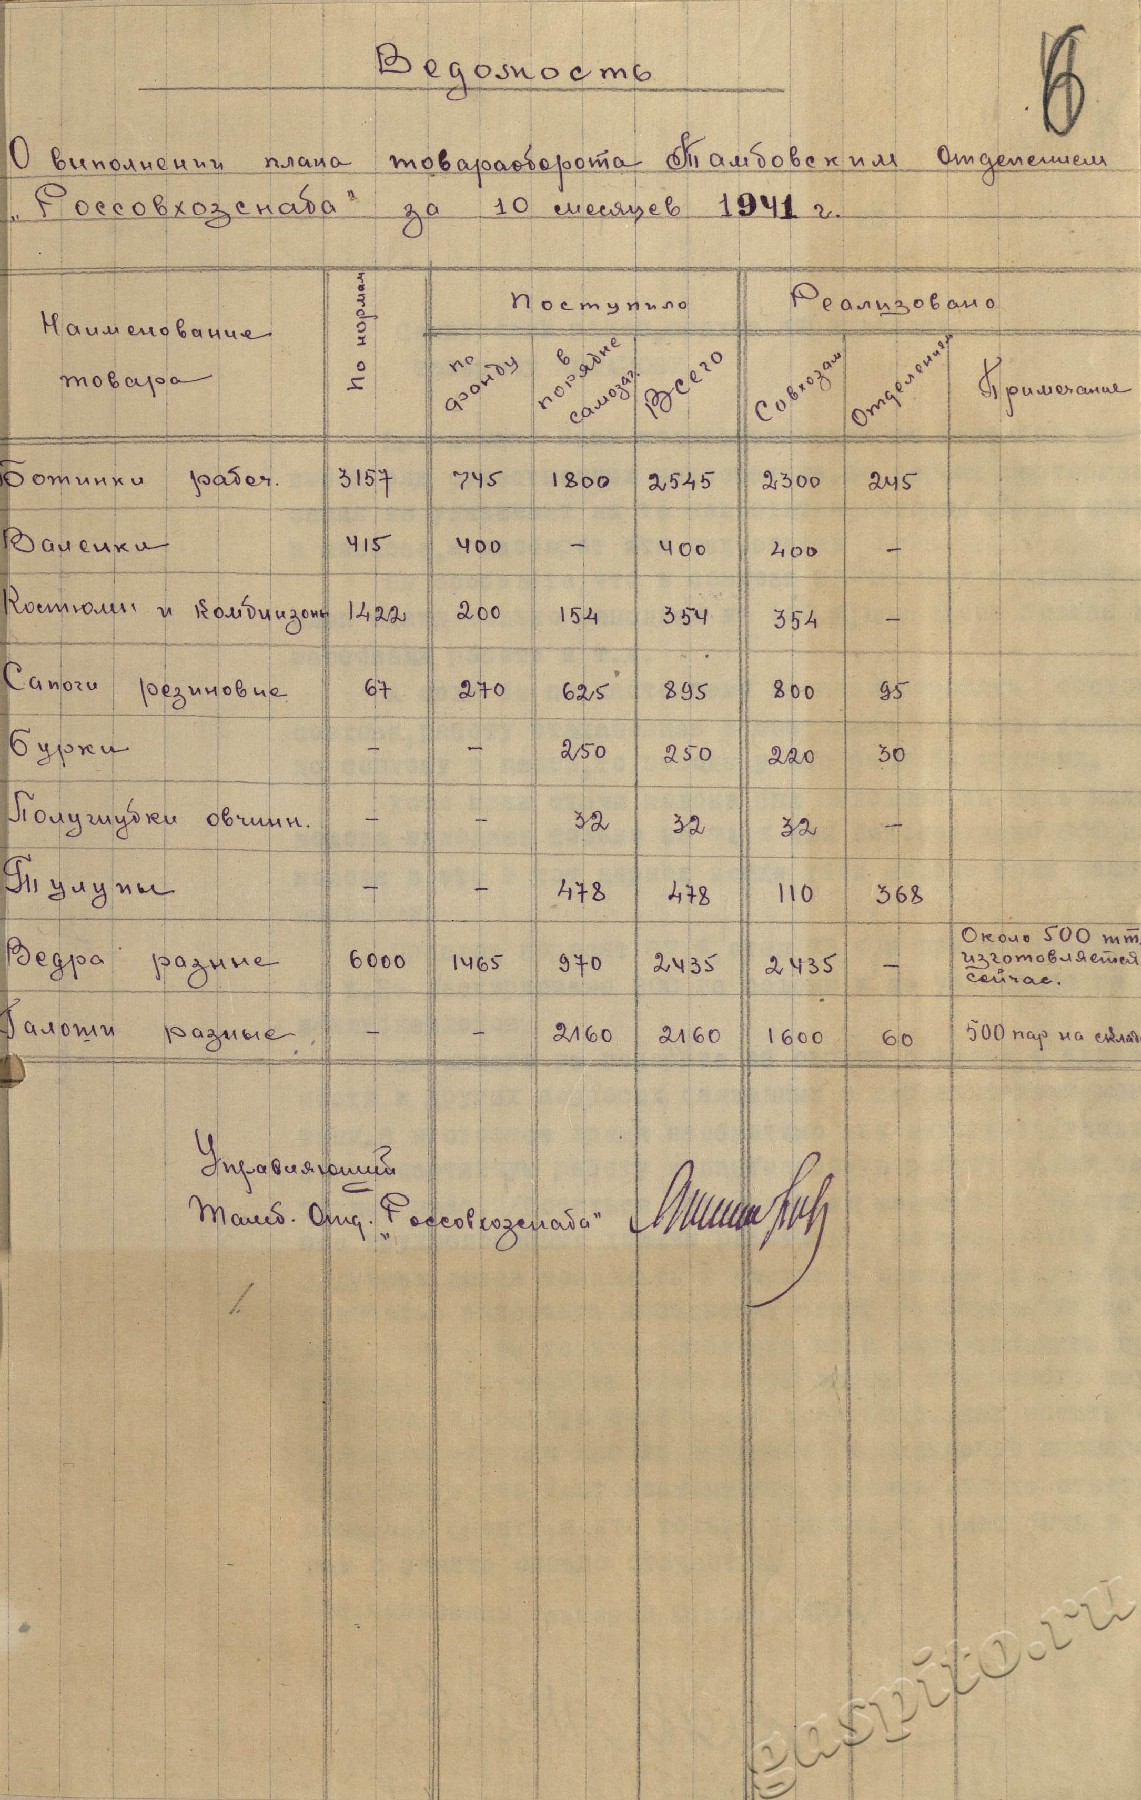 6
Ведомость
О выполнении плана товараоборота Тамбовским Отделением
„Россовхозснаба" за 10 месяцев 1941 г.
Наименование товара | По нормам | Поступило | Реализовано
по фонду | в порядке самозаг. | Всего | Совхозам | Отделениям | Примечание
Ботинки рабоч. 3157 745 1800 2545 2300 245
Валенки 415 400 – 400 400 –
Костюмы и Комбинизоны 1422 200 154 354 354 –
Сапоги резиновые 67 270 625 895 800 95
Бурки – – 250 250 220 30
Полушубки овчинн. – – 32 32 32 –
Тулупы – – 478 478 110 368
Ведра разные 6000 1465 970 2435 2435 – Около 500 шт. изготовляется сейчас.
Галоши разные – – 2160 2160 1600 60 500 пар на складе
Управляющий
Тамб. Отд. „Россовхозснаба"
gaspito.ru